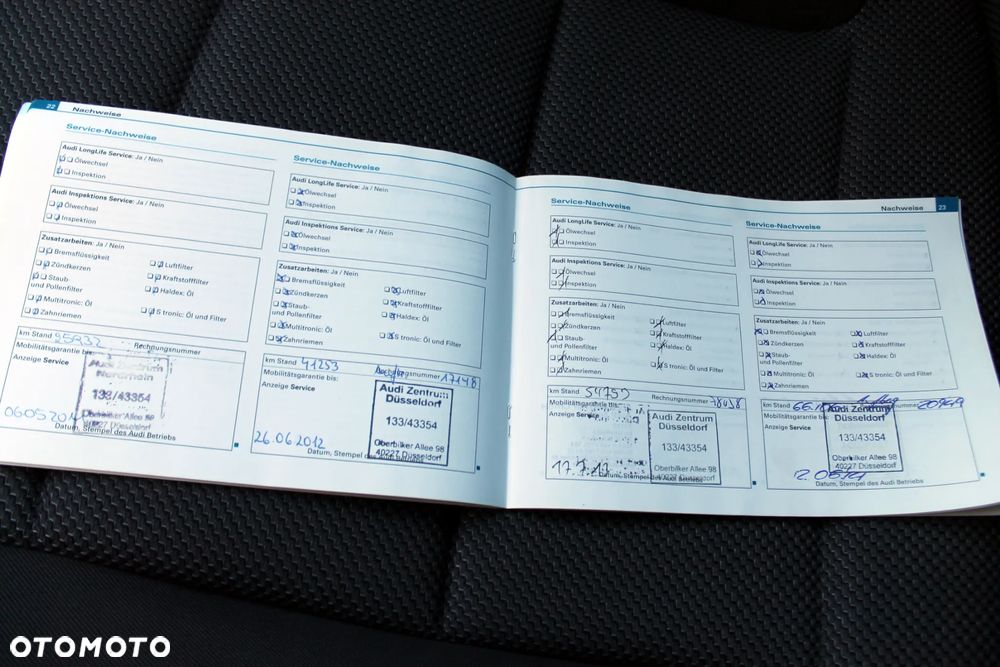 22 Nachweise
Service-Nachweise
Audi LongLife Service: Ja / Nein
Ölwechsel
Inspektion
Audi Inspektions Service: Ja / Nein
Ölwechsel
Inspektion
Zusatzarbeiten: Ja / Nein
Bremsflüssigkeit
Zündkerzen
Staub
und Pollenfilter
Multitronic: Öl
Zahnriemen
Luftfilter
Kraftstofffilter
Haldex: Öl
S tronic: Öl und Filter
km Stand
Rechnungsnummer
Mobilitätsgarantie bis:
Anzeige Service
Audi Zentrum
Nordrhein
133/43354
Oberbilker Allee 98
40227 Düsseldorf
Datum, Stempel des Audi Betriebs
Service-Nachweise
Audi LongLife Service: Ja / Nein
Ölwechsel
Inspektion
Audi Inspektions Service: Ja / Nein
Ölwechsel
Inspektion
Zusatzarbeiten: Ja / Nein
Bremsflüssigkeit
Zündkerzen
Staub-
und Pollenfilter
Multitronic: Öl
Zahnriemen
Luftfilter
Kraftstofffilter
Haldex: Öl
S tronic: Öl und Filter
km Stand 41253
Rechnungsnummer 17148
Mobilitätsgarantie bis:
Anzeige Service
Audi Zentrum
Düsseldorf
133/43354
Oberbilker Allee 98
40227 Düsseldorf
26.06.2012
Datum, Stempel des Audi Betriebs
Service-Nachweise
Audi LongLife Service: Ja / Nein
Ölwechsel
Inspektion
Audi Inspektions Service: Ja / Nein
Ölwechsel
Inspektion
Zusatzarbeiten: Ja / Nein
Bremsflüssigkeit
Zündkerzen
Staub-
und Pollenfilter
Multitronic: Öl
Zahnriemen
Luftfilter
Kraftstofffilter
Haldex: Öl
S tronic: Öl und Filter
km Stand 54759
Rechnungsnummer
Mobilitätsgarantie bis:
Anzeige Service
Audi Zentrum
Düsseldorf
133/43354
Oberbilker Allee 98
40227 Düsseldorf
17.7.13
Datum, Stempel des Audi Betriebs
Nachweise 23
Service-Nachweise
Audi LongLife Service: Ja / Nein
Ölwechsel
Inspektion
Audi Inspektions Service: Ja / Nein
Ölwechsel
Inspektion
Zusatzarbeiten: Ja / Nein
Bremsflüssigkeit
Zündkerzen
Staub-
und Pollenfilter
Multitronic: Öl
Zahnriemen
Luftfilter
Kraftstofffilter
Haldex: Öl
S tronic: Öl und Filter
km Stand
Mobilitätsgarantie bis:
Anzeige Service
Audi Zentrum
Düsseldorf
133/43354
Oberbilker Allee 98
40227 Düsseldorf
Datum, Stempel des Audi Betriebs
OTOMOTO